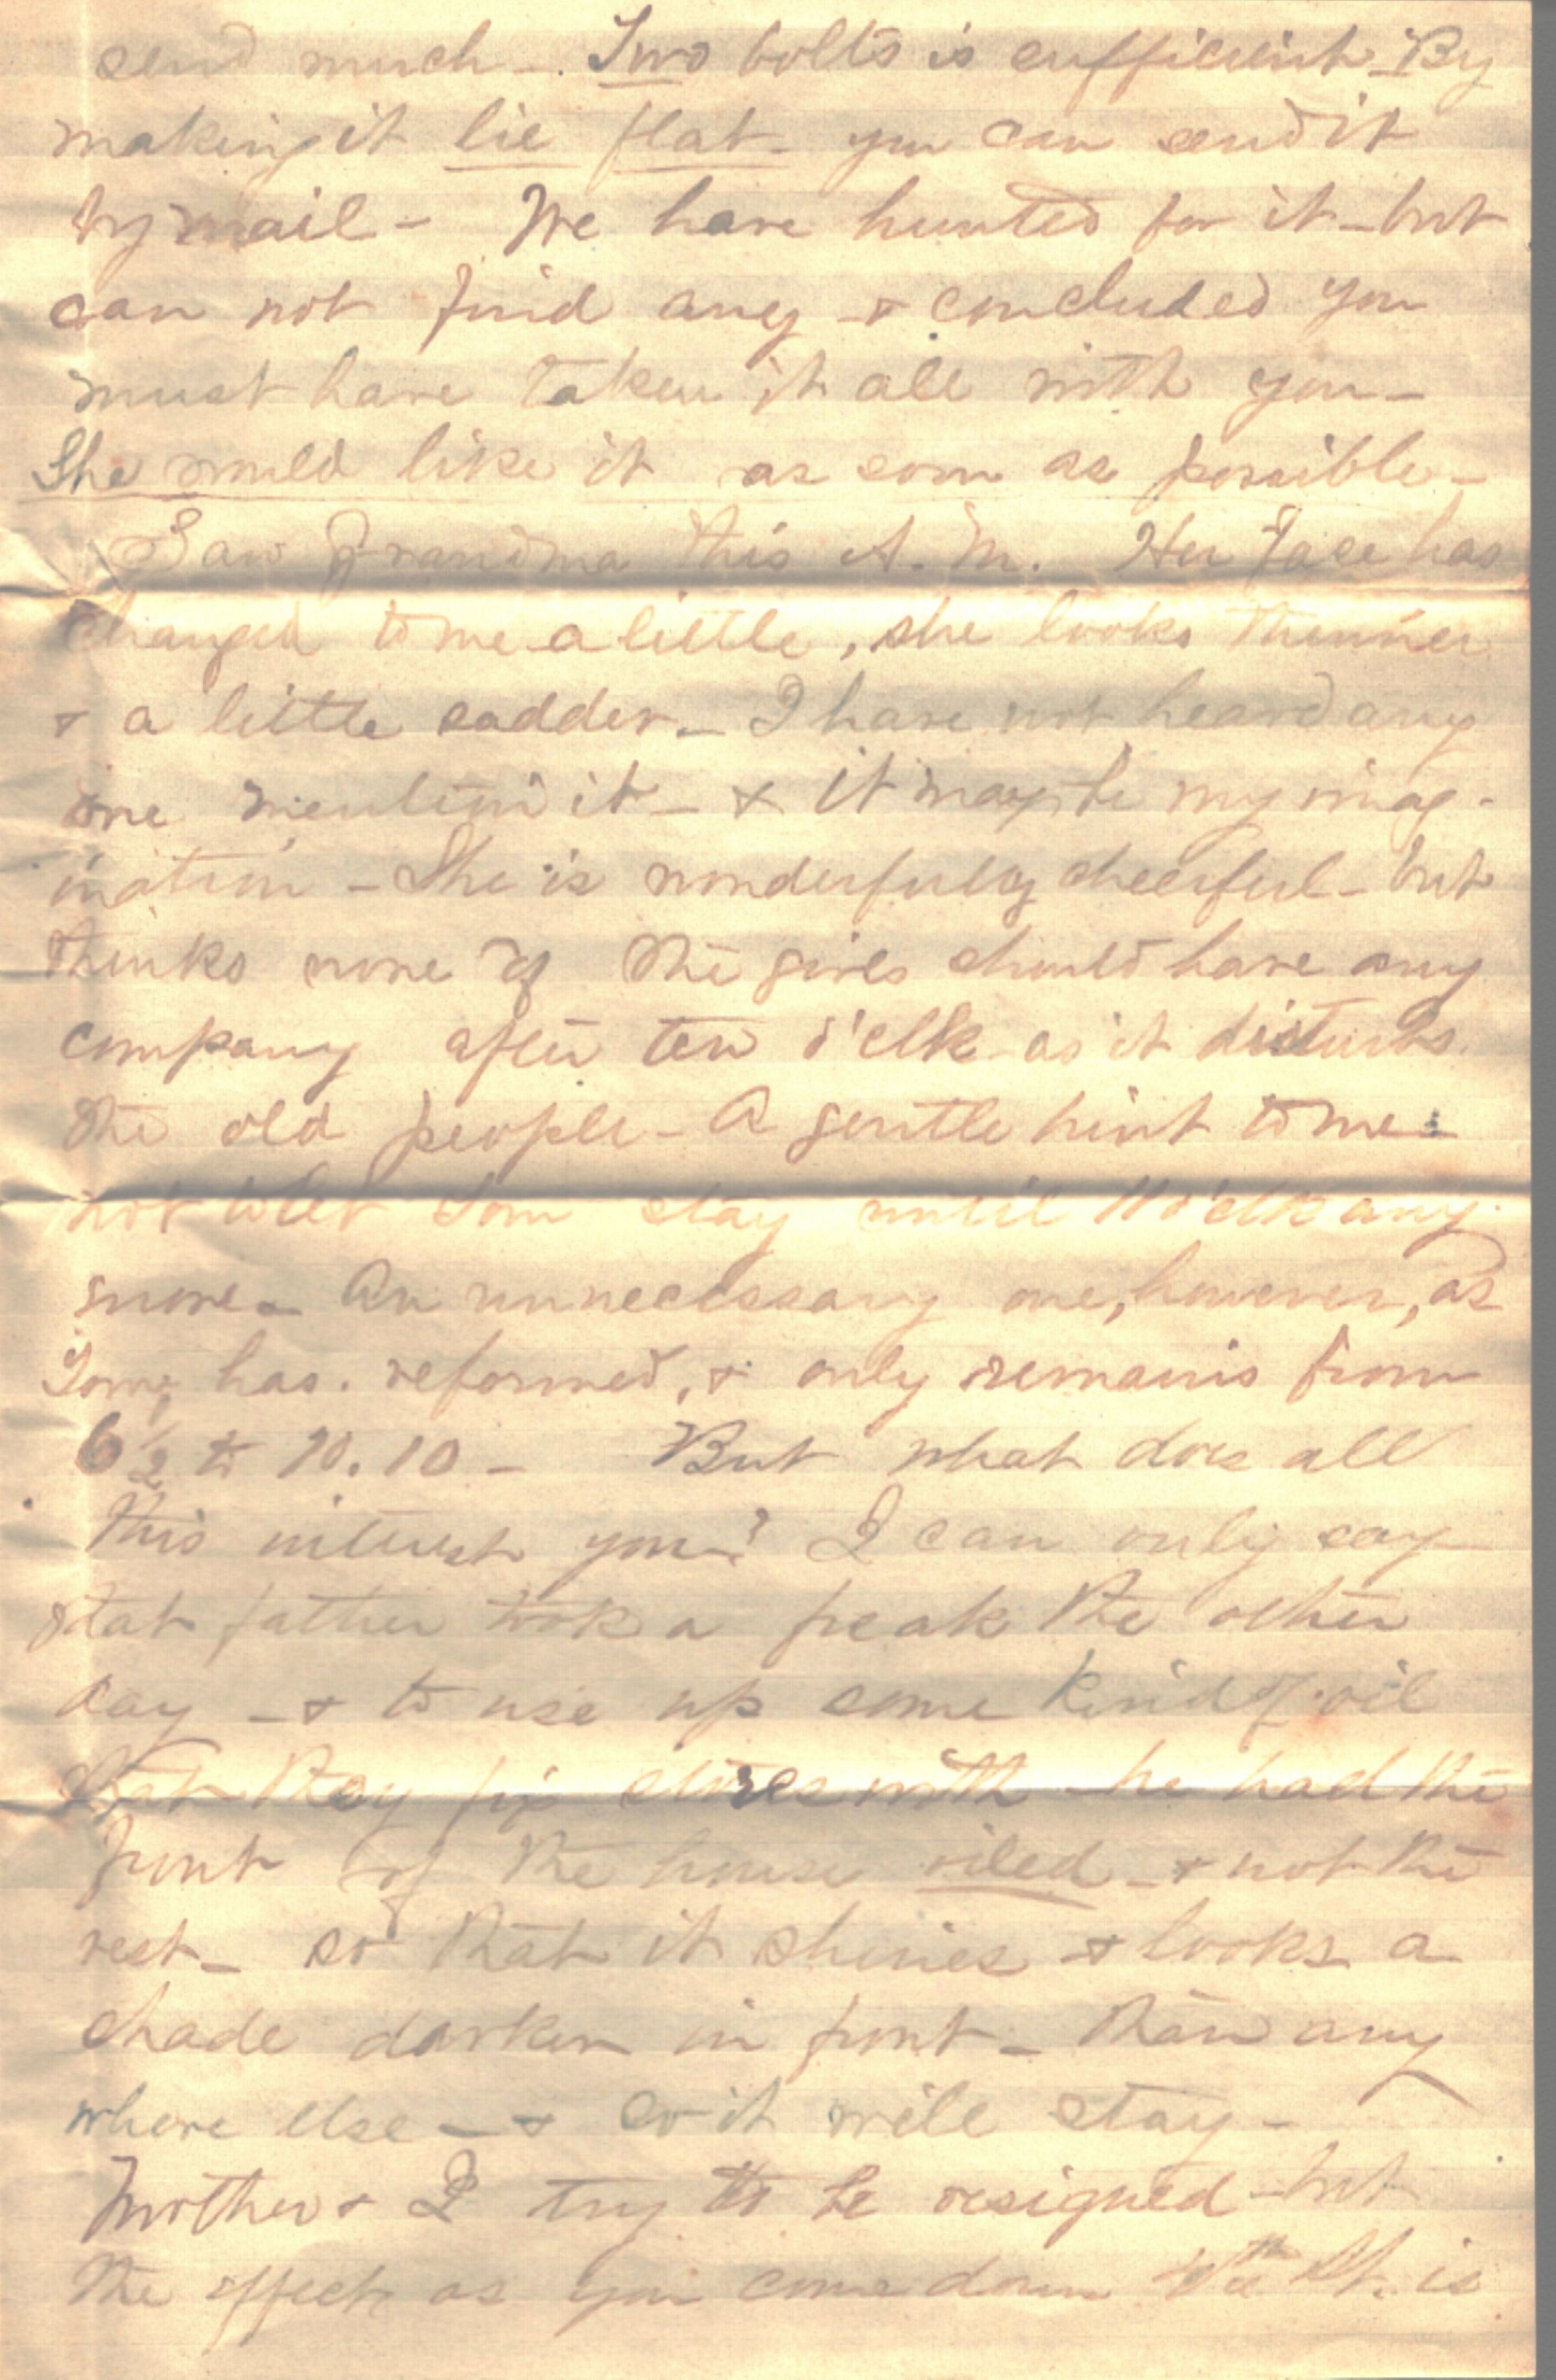 send much - Two bolts is sufficient - By
making it lie flat - you can send it
by mail - We have hunted for it - but
can not find any - & concluded you
must have taken it all with you -
She would like it as soon as possible -
Saw Grandma this A. M. Her face has
changed to me a little, she looks thinner
& a little sadder - I have not heard any
one mention it - & it may be my imag-
ination - She is wonderfully cheerful - but
thinks none of the girls should have any
company after ten o'clk - as it disturbs
the old people - A gentle hint to me -
not to let Tom stay until 11 o'clk any
more - An unnecessary one, however, as
Tom has reformed, & only remains from
6 1/2 to 10.10 - But what does all
this interest you? I can only say
that father took a freak the other
day - & to use up some kind of oil
that they fix stores with - he had the
front of the house oiled - & not the
rest - so that it shines & looks a
shade darker in front - than any
where else - & so it will stay -
Mother & I try to be resigned - but
the effect as you come down St. is